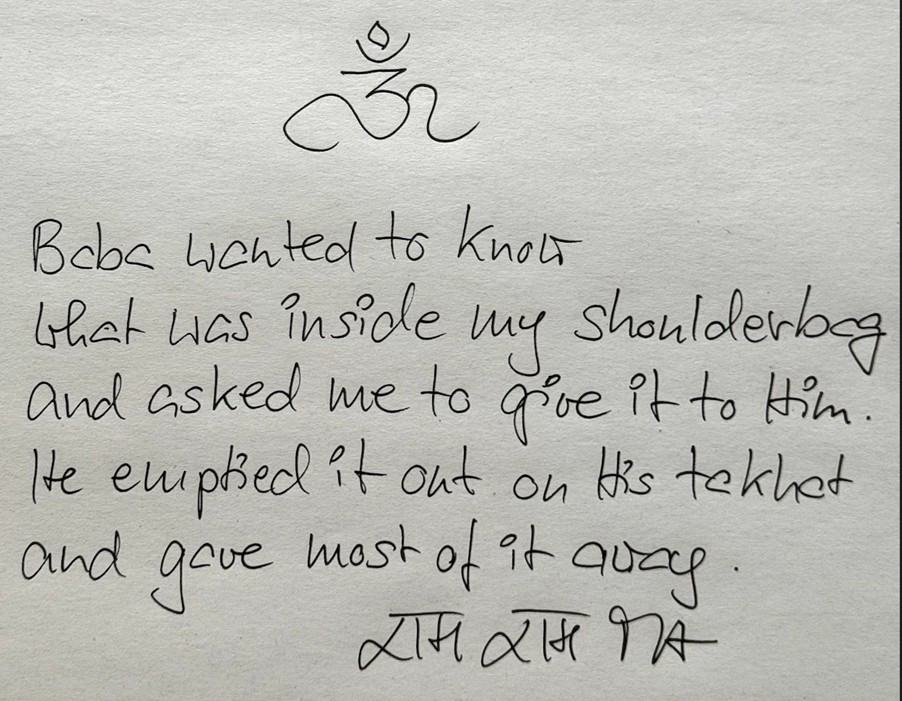 ॐ
Baba wanted to know
what was inside my shoulderbag
and asked me to give it to Him.
He emptied it out on His takhat
and gave most of it away.
राम राम